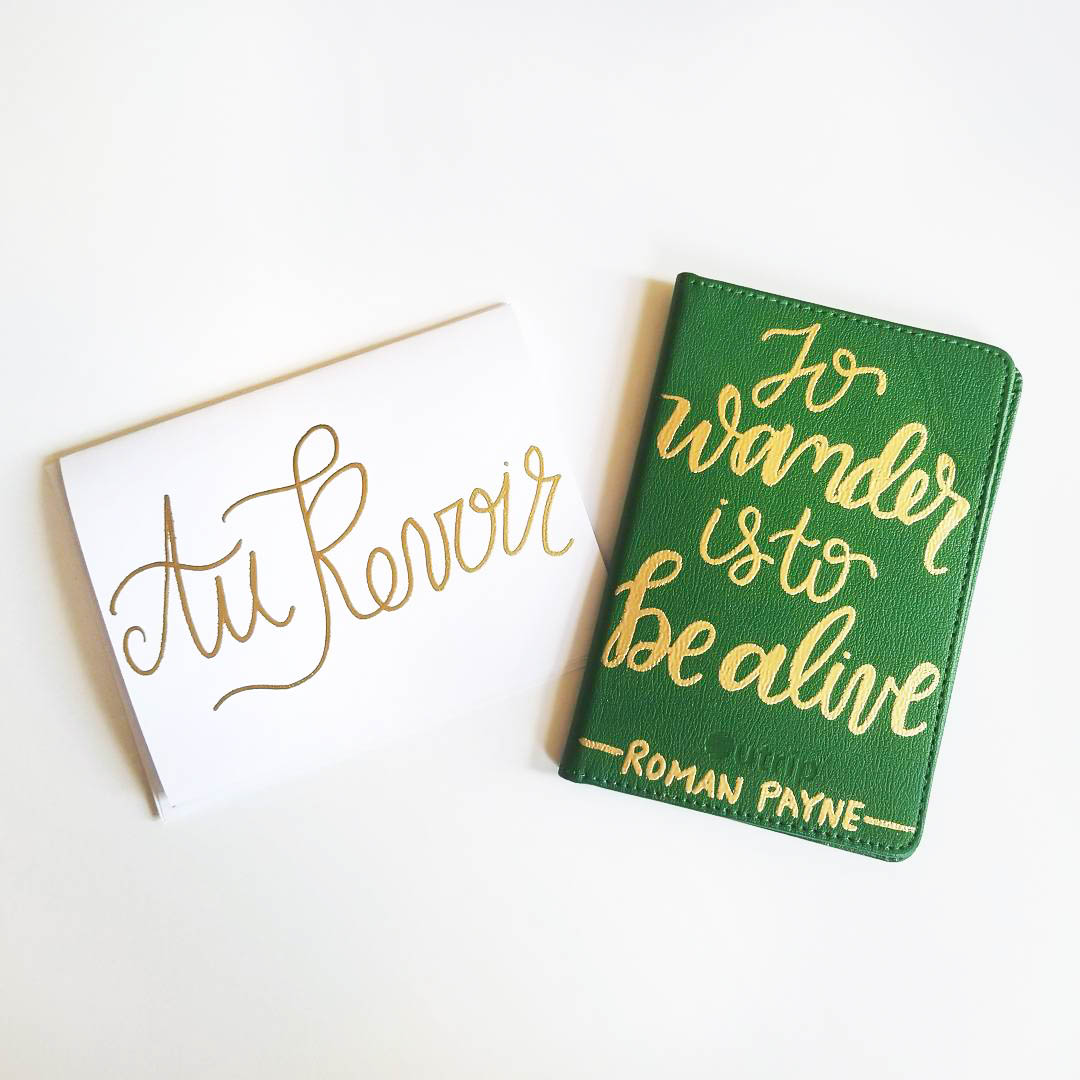 Au Revoir
To
wander
is to
be alive
utrip
—ROMAN PAYNE—